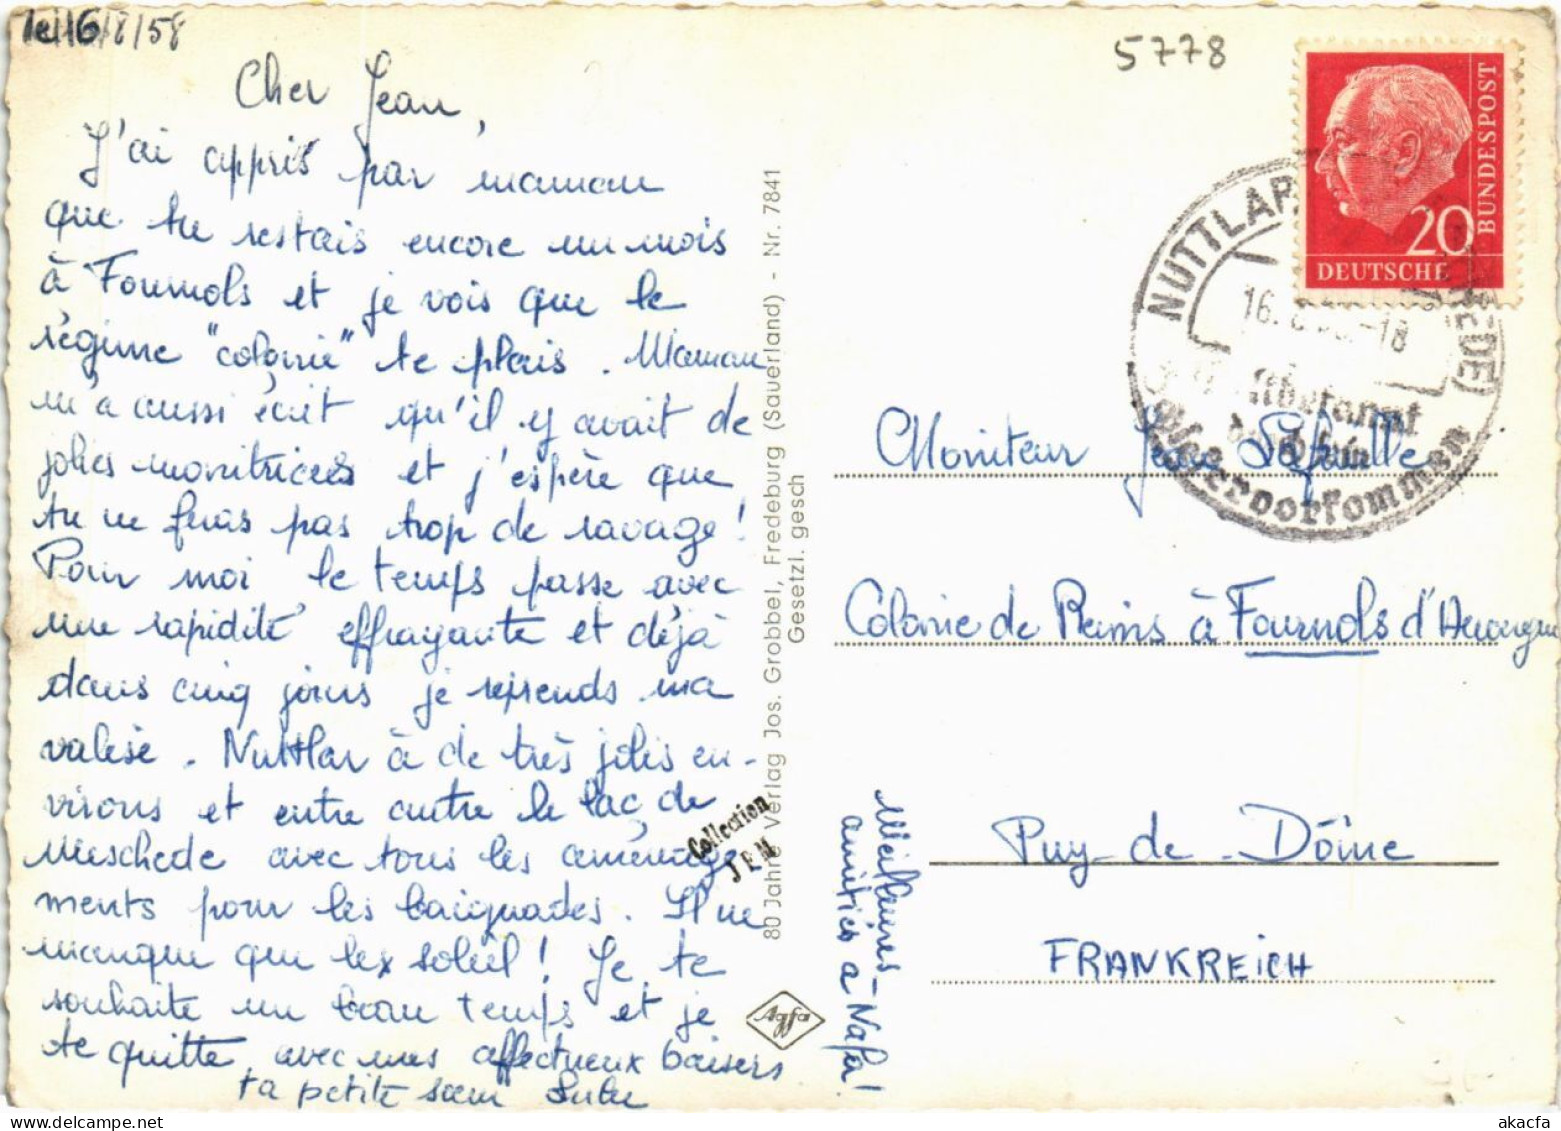 le 16/8/58
Cher Jean,
J'ai appris par maman
que tu restais encore un mois
à Fournols et je vois que le
régime "colonie" te plais. Maman
m'a aussi écrit qu'il y avait de
jolies monitrices et j'espère que
tu ne feras pas trop de ravage!
Pour moi le temps passe avec
une rapidité effrayante et déjà
dans cinq jours je reprends ma
valise. Nuttlar à de très jolis en-
virons et entre autre le lac de
Meschede avec tous les aménage
ments pour les baignades. Il ne
manque que le soleil! Je te
souhaite un beau temps et je
te quitte avec mes affectueux baisers
ta petite sœur Lulu
80 Jahre Verlag Jos. Grobbel, Fredeburg (Sauerland) - Nr. 7841
Gesetzl. gesch
Collection
JEN
Agfa
5778
DEUTSCHE
BUNDESPOST
20
NUTTLAR
16. -18
Moniteur Jean
Colonie de Reims à Fournols d'Auvergne
Puy-de-Dôme
FRANKREICH
Meilleures
amitiés a Nafa!
akacfa